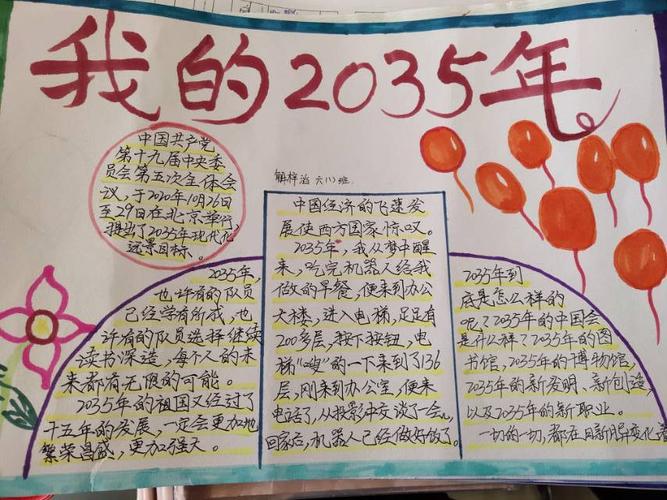 我的2035年
中国共产党
第十九届中央委
员会第五次全体会
议，于2020年10月26日
至29日在北京举行
提出了2035年现代化
远景目标。
解梓涵 六(1)班
2035年，
也许有的队员
已经学有所成，也
许有的队员选择继续
读书深造，每个人的未
来都有无限的可能。
2035年的祖国又经过了
十五年的发展，一定会更加地
繁荣昌盛，更加强大。
中国经济的飞速发
展使西方国家惊叹。
2035年，我从梦中醒
来，吃完机器人给我
做的早餐，便来到办公
大楼，进入电梯，足足有
200多层，我按下按钮，电
梯“嗖”的一下来到了136
层，刚来到办公室，便来
电话了，从投影中交谈了一会儿
回家后，机器人已经做好饭了。
2035年到
底是怎么样的
呢？2035年的中国会
是什么样？2035年的图
书馆，2035年的博物馆，
2035年的新发明、新创造，
以及2035年的新职业。
一切的一切，都在日新月异变化着